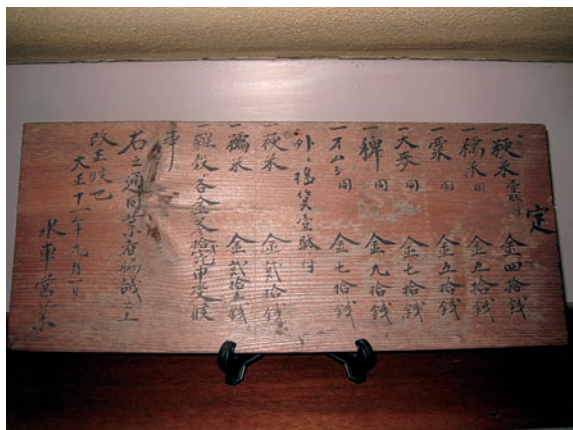 定
一粳米 壹駄ニ付 金四拾銭
一糯米 同 金五拾銭
一粟 同 金五拾銭
一大麥 同 金七拾銭
一稗 同 金九拾銭
一オムシ 同 金七拾銭
外ニ 搗賃壹駄ニ付
一粳米 金貳拾銭
一糯米 金貳拾五銭
一雜穀 各金
事
右之通同業者協議之上
改正候也
大正十一年九月一日
水車営業